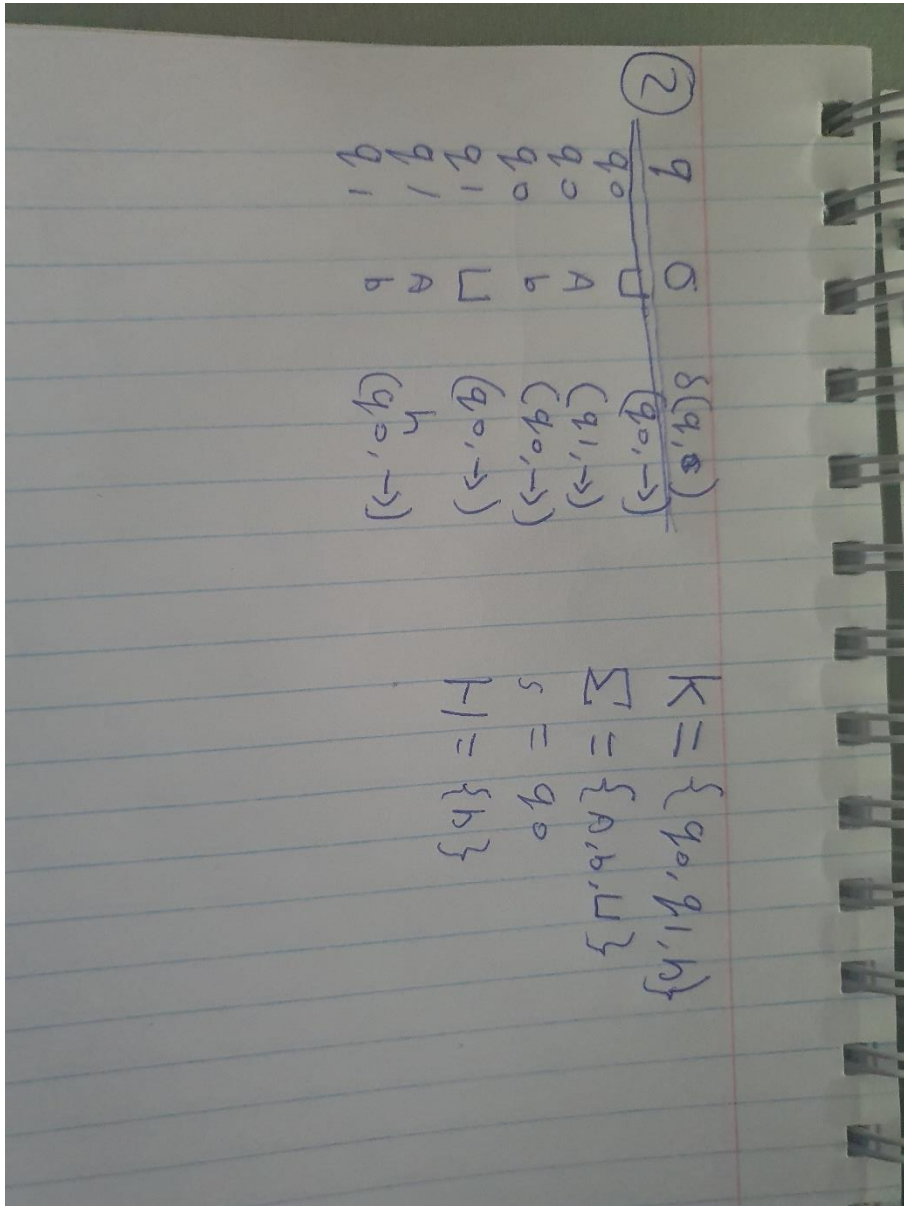 ② q σ δ(q,σ)
q0 ⊔ (q0,→)
q0 a (q1,→)
q0 b (q0,→)
q1 ⊔ (q0,→)
q1 a h
q1 b (q0,→)
K = {q0,q1,h}
Σ = {a,b,⊔}
s = q0
H = {h}